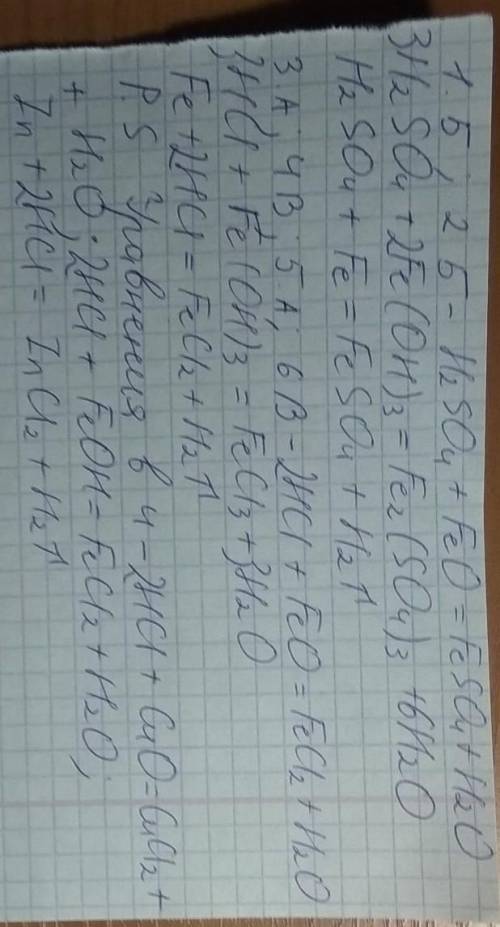 1. Б; 2 Б - H2SO4 + FeO = FeSO4 + H2O
3H2SO4 + 2Fe(OH)3 = Fe2(SO4)3 + 6H2O
H2SO4 + Fe = FeSO4 + H2↑
3. А; 4В; 5. А; 6 В - 2HCl + FeO = FeCl2 + H2O
3HCl + Fe(OH)3 = FeCl3 + 3H2O
Fe + 2HCl = FeCl2 + H2↑
P.S Уравнения в 4 - 2HCl + CuO = CuCl2 +
+ H2O; 2HCl + FeOH = FeCl2 + H2O;
Zn + 2HCl = ZnCl2 + H2↑